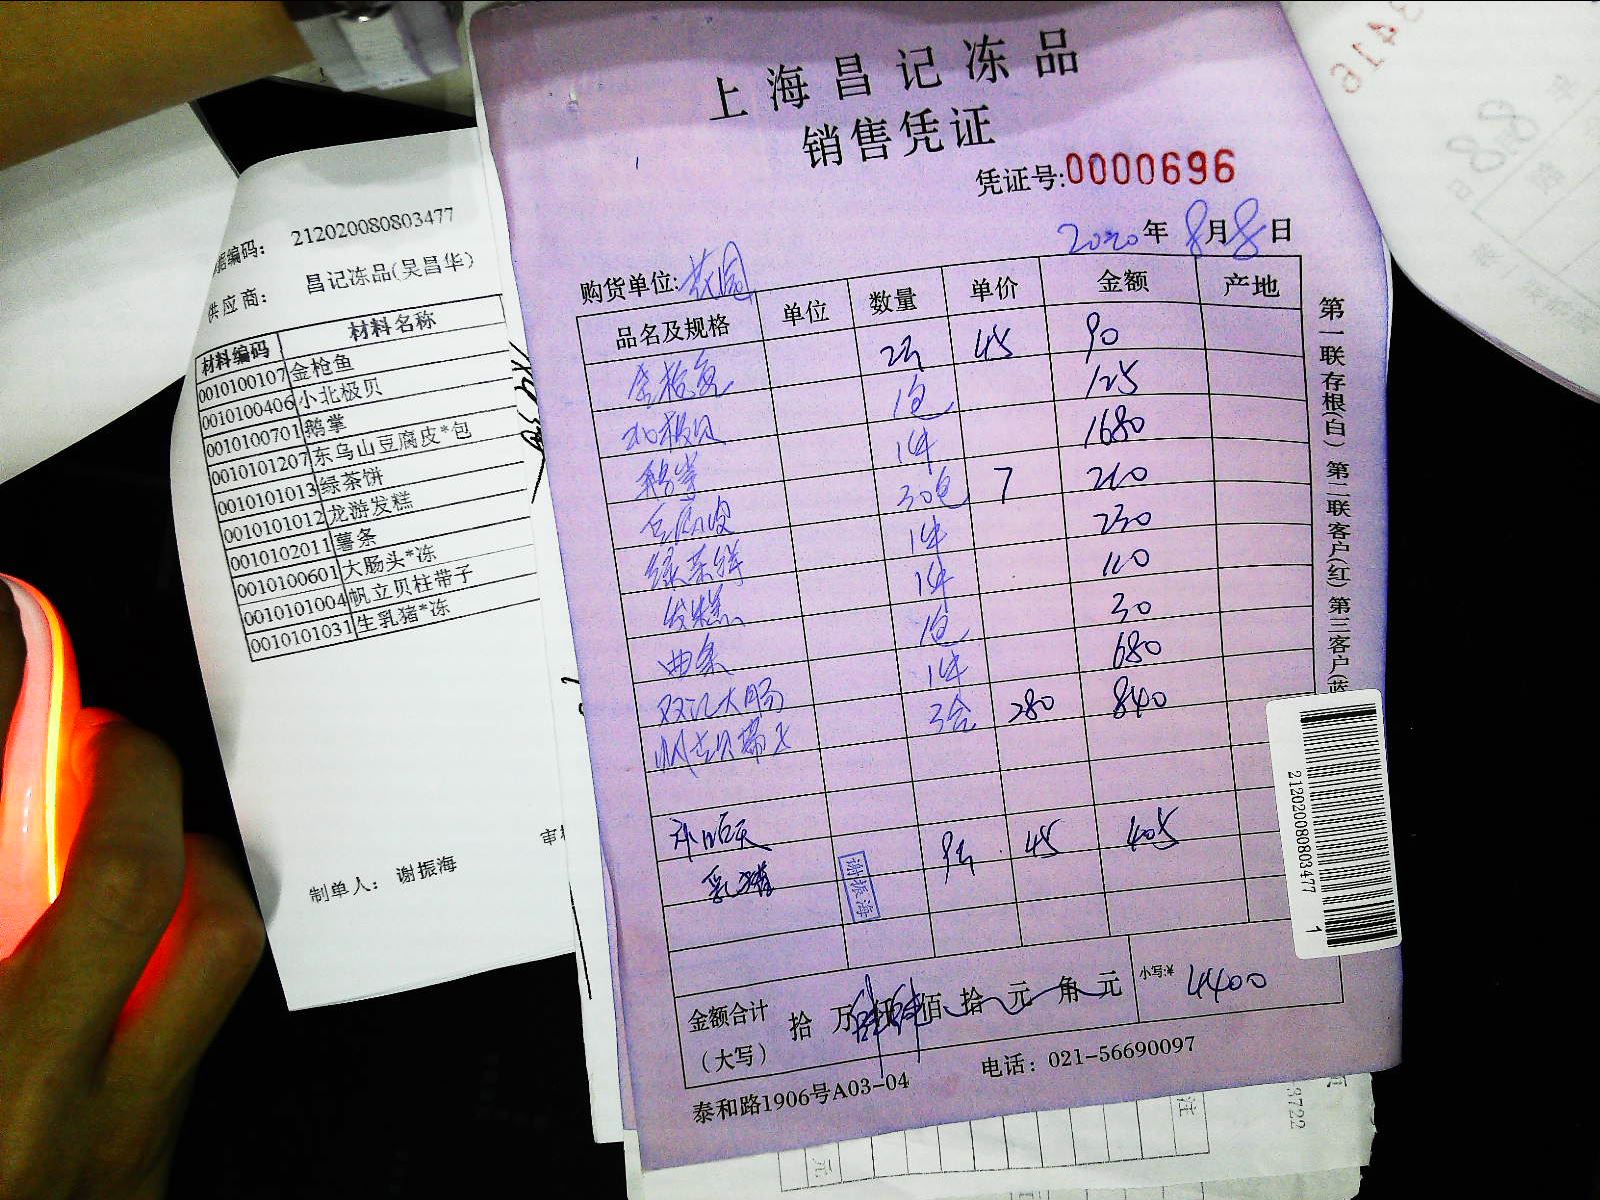 上海昌记冻品
销售凭证
凭证号:0000696
2020年8月8日
购货单位:花园
品名及规格 单位 数量 单价 金额 产地
金枪鱼 2斤 45 90
北极贝 1包 125
鹅掌 1件 1680
豆腐皮 30包 7 210
绿茶饼 1件 230
发糕 1件 110
曲条 1包 30
双汇大肠 1件 680
帆立贝带子 3合 280 840
补昨天
乳猪 9斤 45 405
谢振海
金额合计
(大写)
拾 万 仟 佰 拾 元 角 元
小写:¥ 4400
泰和路1906号A03-04 电话：021-56690097
第一联存根(白) 第二联客户(红) 第三客户(蓝
212020080803477 1
编码： 212020080803477
供应商： 昌记冻品(吴昌华)
材料编码 材料名称
0010100107 金枪鱼
0010100406 小北极贝
0010100701 鹅掌
0010101207 东乌山豆腐皮*包
0010101013 绿茶饼
0010101012 龙游发糕
0010102011 薯条
0010100601 大肠头*冻
0010101004 帆立贝柱带子
0010101031 生乳猪*冻
制单人： 谢振海
审
3416
88
3722
注
元